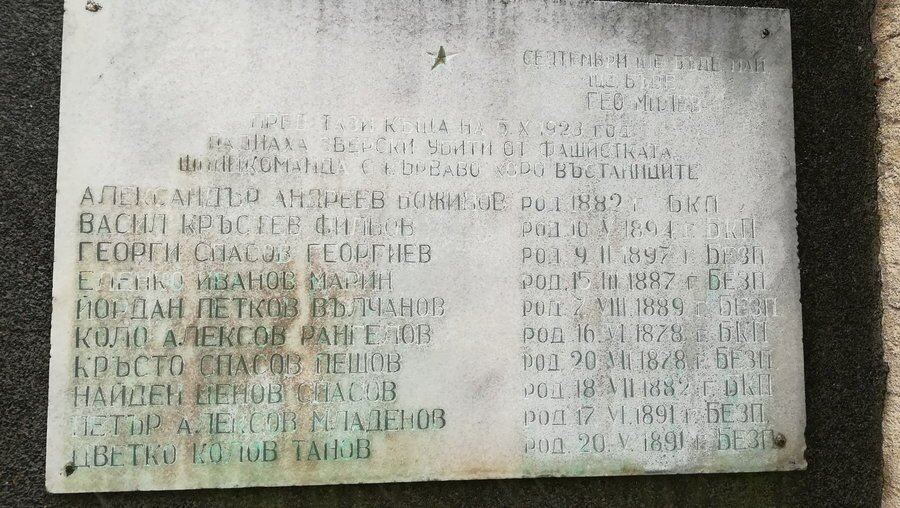 СЕПТЕМВРИ ЩЕ БЪДЕ МАЙ
ЩЕ БЪДЕ
ГЕО МИЛЕВ
ПРЕД ТАЗИ КЪЩА НА 5 X 1923 ГОД
ПАДНАХА ЗВЕРСКИ УБИТИ ОТ ФАШИСТКАТА
ШПИЦКОМАНДА С КЪРВАВО ХОРО ВЪСТАНИЦИТЕ
АЛЕКСАНДЪР АНДРЕЕВ БОЖИНОВ РОД. 1882 Г. БКП
ВАСИЛ КРЪСТЕВ ФИЛИПОВ РОД. 10 V 1894 Г. БКП
ГЕОРГИ СПАСОВ ГЕОРГИЕВ РОД. 9 II 1897 Г. БЕЗП.
ЕЛЕНКО ИВАНОВ МАРИН РОД. 15 III 1887 Г. БЕЗП.
ЙОРДАН ПЕТКОВ ВЪЛЧАНОВ РОД. 7 VIII 1889 Г. БЕЗП
КОЛО АЛЕКСОВ РАНГЕЛОВ РОД. 16 VI 1878 Г. БКП
КРЪСТО СПАСОВ ПЕШОВ РОД. 20 VII 1878 Г. БЕЗП
НАЙДЕН ЦЕНОВ СПАСОВ РОД. 18 VII 1882 Г. БКП
ПЕТЪР АЛЕКСОВ МЛАДЕНОВ РОД. 17 VI 1891 Г. БЕЗП.
ЦВЕТКО КОЛОВ ТАНОВ РОД. 20 V 1891 Г. БЕЗП